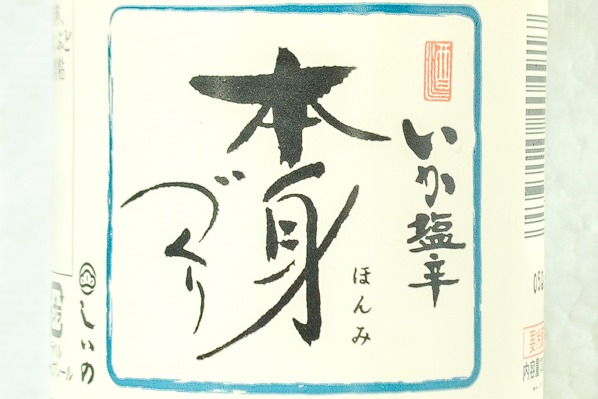 いか塩辛
本身
ほんみ
づくり
しいの
要冷
内容量